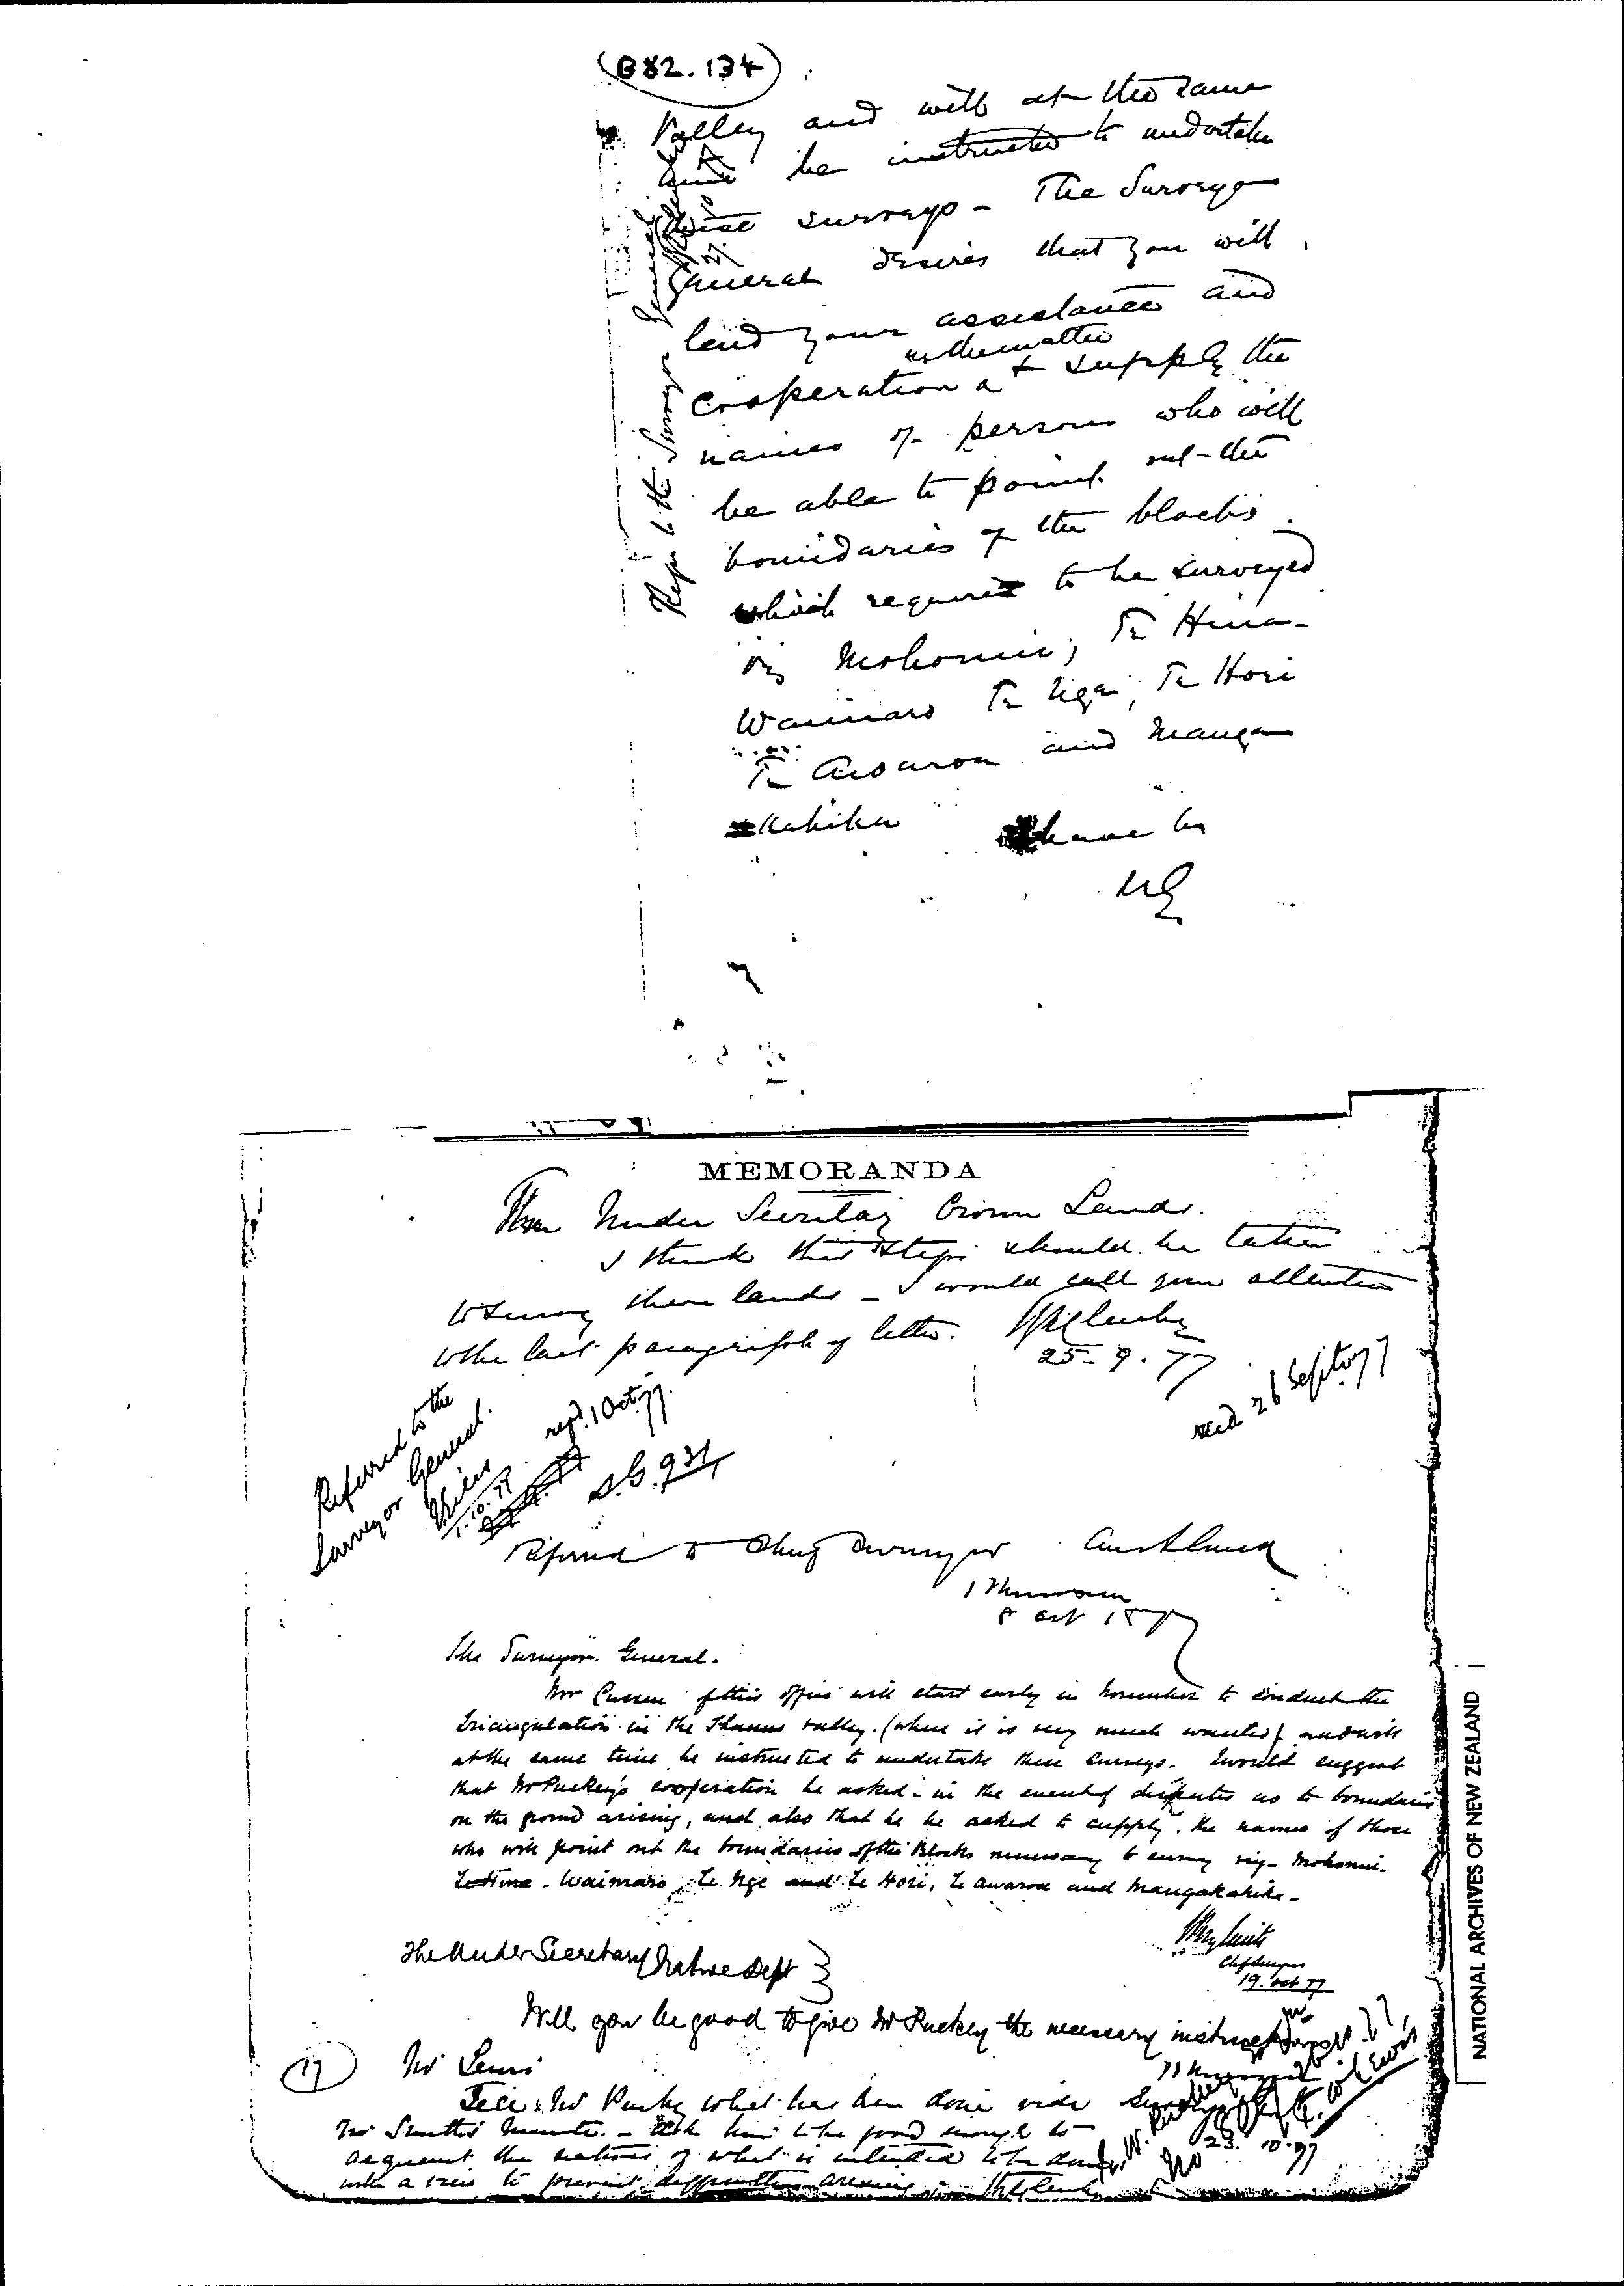 B82.134
Valley and will at the same
time be instructed to undertake
these surveys - The Surveyor
General desires that you will
lend your assistance and
in the matter
cooperation & supply the
names of persons who will
be able to point out the
boundaries of the blocks
which require to be surveyed
viz Mohonui, Te Hina-
Waimaro Te Nge, Te Hori
Te Awaroa and Manga
Kahika have &c
Refer to the Surveyor
MEMORANDA
The Under Secretary Crown Lands.
I think that steps should be taken
to survey these lands - I would call your attention
to the last paragraph of letter.
25-9.77
recd 26 Sept 77
Referred to the
Surveyor General.
1.10.77
recd. 1 Oct. 77.
S.G. 931
Referred to Chief Surveyor Auckland
8 Oct 1877
The Surveyor General.
Mr Cussen of this office will start early in November to conduct the
triangulation in the Thames Valley. (where it is very much wanted) and will
at the same time be instructed to undertake these surveys. I would suggest
that Mr Puckey's cooperation be asked - in the event of disputes as to boundaries
on the ground arising, and also that he be asked to supply the names of those
who will point out the boundaries of the Blocks necessary to survey viz - Mohonui.
Te Hina - Waimaro, Te Nge and Te Hori, Te Awaroa and Mangakahika -
Chf Surveyor
19. Oct 77
The Under Secretary Native Dept
Will you be good to give Mr Puckey the necessary instructions
17
Mr Lewis
Tell Mr Puckey what has been done vide
Mr Smith's minute. - Ask him to be good enough to
acquaint the natives of what is intended to be done
with a view to prevent difficulties arising
23.10.77
NATIONAL ARCHIVES OF NEW ZEALAND